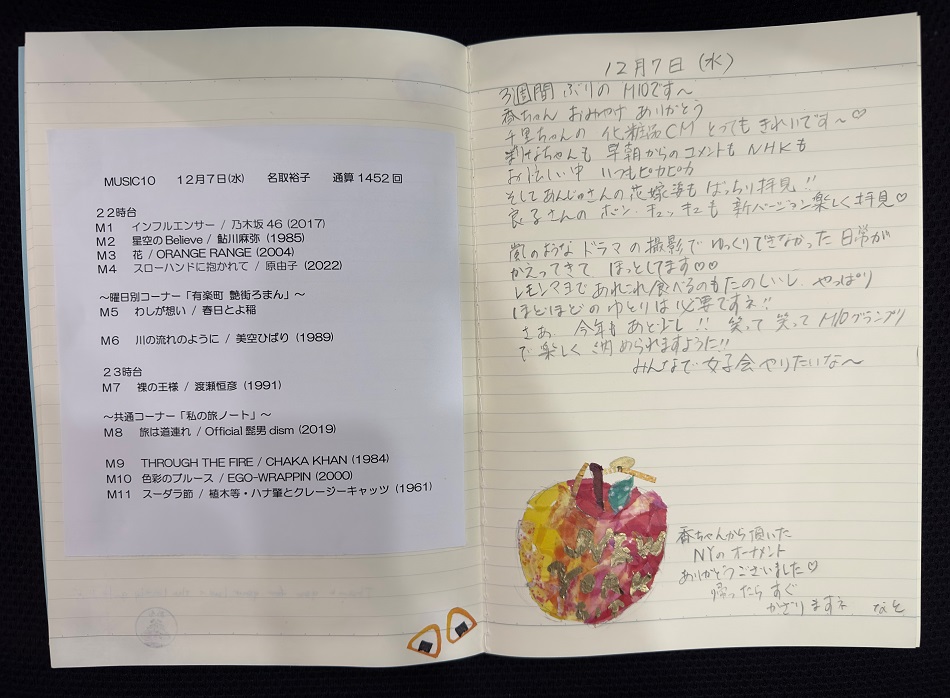 MUSIC10 12月7日(水) 名取裕子 通算1452回
22時台
M1 インフルエンサー / 乃木坂46 (2017)
M2 星空のBelieve / 鮎川麻弥 (1985)
M3 花 / ORANGE RANGE (2004)
M4 スローハンドに抱かれて / 原由子 (2022)
～曜日別コーナー「有楽町 艶街ろまん」～
M5 わしが想い / 春日とよ稲
M6 川の流れのように / 美空ひばり (1989)
23時台
M7 裸の王様 / 渡瀬恒彦 (1991)
～共通コーナー「私の旅ノート」～
M8 旅は道連れ / Official髭男dism (2019)
M9 THROUGH THE FIRE / CHAKA KHAN (1984)
M10 色彩のブルース / EGO-WRAPPIN (2000)
M11 スーダラ節 / 植木等・ハナ肇とクレージーキャッツ (1961)
12月7日 (水)
3週間ぶりの M10です～
香ちゃん おみやげ ありがとう
千里ちゃんの 化粧品CM とってもきれいです～♡
ちゃんも 早朝からのコメントも NHKも
お忙しい中 いつもピカピカ
そしてあんじゅさんの花嫁姿もばっちり拝見!!
良子さんの ボン・キュッキュも 新バージョン楽しく拝見♡
嵐のような ドラマの撮影で ゆっくりできなかった 日常が
かえってきて ほっとしてます♡♡
レモンマヨであれこれ食べるのもたのしいし やっぱり
ほどほどの ゆとりは 必要ですネ!!
さぁ 今年もあと少し!! 笑って 笑って M10グランプリ
で 楽しく 納められますように!!
みんなで 女子会 やりたいな～
NEW
YORK
香ちゃんから頂いた
NYの オーナメント
ありがとうございました♡
帰ったら すぐ
かざりますネ なと